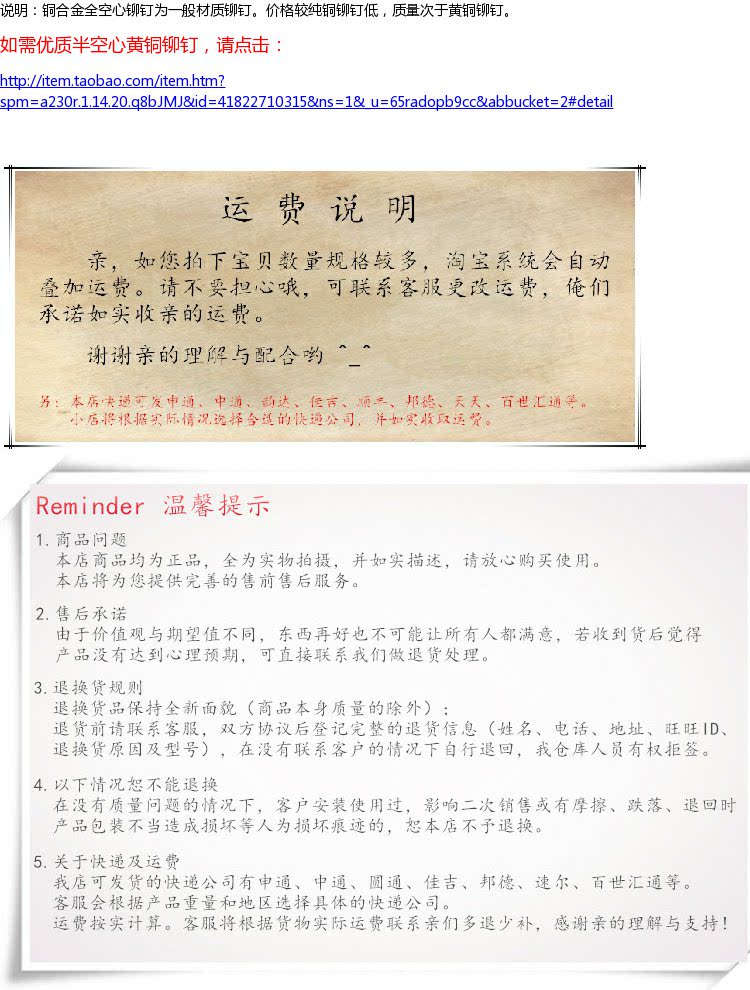 说明：铜合金全空心铆钉为一般材质铆钉。价格较纯铜铆钉低，质量次于黄铜铆钉。
如需优质半空心黄铜铆钉，请点击：
http://item.taobao.com/item.htm?
spm=a230r.1.14.20.q8bJMJ&id=41822710315&ns=1&_u=65radopb9cc&abbucket=2#detail
运费说明
亲，如您拍下宝贝数量规格较多，淘宝系统会自动
叠加运费。请不要担心哦，可联系客服更改运费，俺们
承诺如实收亲的运费。
谢谢亲的理解与配合哟 ^_^
另：本店快递可发申通、中通、韵达、佳吉、顺丰、邦德、天天、百世汇通等。
小店将根据实际情况选择合适的快递公司，并如实收取运费。
Reminder 温馨提示
1.商品问题
本店商品均为正品，全为实物拍摄，并如实描述，请放心购买使用。
本店将为您提供完善的售前售后服务。
2.售后承诺
由于价值观与期望值不同，东西再好也不可能让所有人都满意，若收到货后觉得
产品没有达到心理预期，可直接联系我们做退货处理。
3.退换货规则
退换货品保持全新面貌（商品本身质量的除外）；
退货前请联系客服，双方协议后登记完整的退货信息（姓名、电话、地址、旺旺ID、
退换货原因及型号），在没有联系客户的情况下自行退回，我仓库人员有权拒签。
4.以下情况恕不能退换
在没有质量问题的情况下，客户安装使用过，影响二次销售或有摩擦、跌落、退回时
产品包装不当造成损坏等人为损坏痕迹的，恕本店不予退换。
5.关于快递及运费
我店可发货的快递公司有申通、中通、圆通、佳吉、邦德、速尔、百世汇通等。
客服会根据产品重量和地区选择具体的快递公司。
运费按实计算。客服将根据货物实际运费联系亲们多退少补，感谢亲的理解与支持！